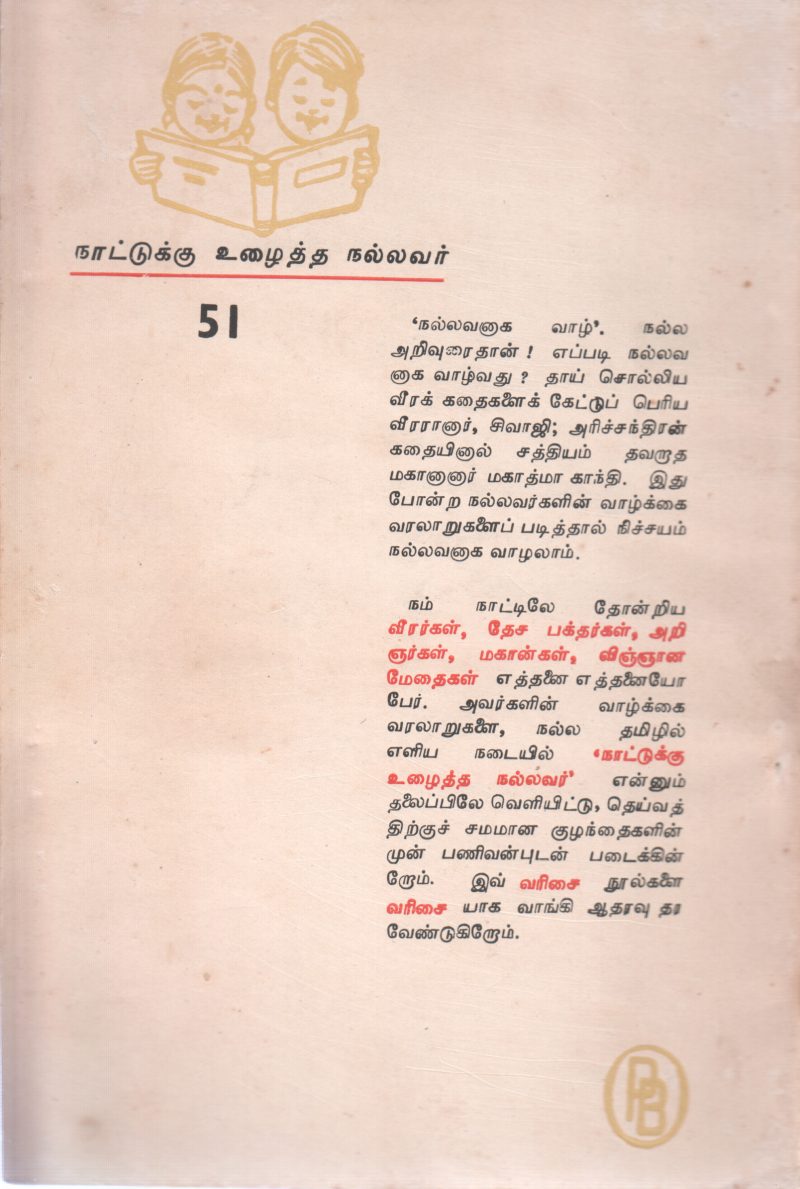 நாட்டுக்கு உழைத்த நல்லவர்
51
‘நல்லவனாக வாழ்’. நல்ல
அறிவுரைதான் ! எப்படி நல்லவ
னாக வாழ்வது ? தாய் சொல்லிய
வீரக் கதைகளைக் கேட்டுப் பெரிய
வீரரானார், சிவாஜி; அரிச்சந்திரன்
கதையினால் சத்தியம் தவறாத
மகானானார் மகாத்மா காந்தி. இது
போன்ற நல்லவர்களின் வாழ்க்கை
வரலாறுகளைப் படித்தால் நிச்சயம்
நல்லவனாக வாழலாம்.
நம் நாட்டிலே தோன்றிய
வீரர்கள், தேச பக்தர்கள், அறி
ஞர்கள், மகான்கள், விஞ்ஞான
மேதைகள் எத்தனை எத்தனையோ
பேர். அவர்களின் வாழ்க்கை
வரலாறுகளை, நல்ல தமிழில்
எளிய நடையில் ‘நாட்டுக்கு
உழைத்த நல்லவர்’ என்னும்
தலைப்பிலே வெளியிட்டு, தெய்வத்
திற்குச் சமமான குழந்தைகளின்
முன் பணிவன்புடன் படைக்கின்
றோம். இவ் வரிசை நூல்களை
வரிசை யாக வாங்கி ஆதரவு தர
வேண்டுகிறோம்.
PB